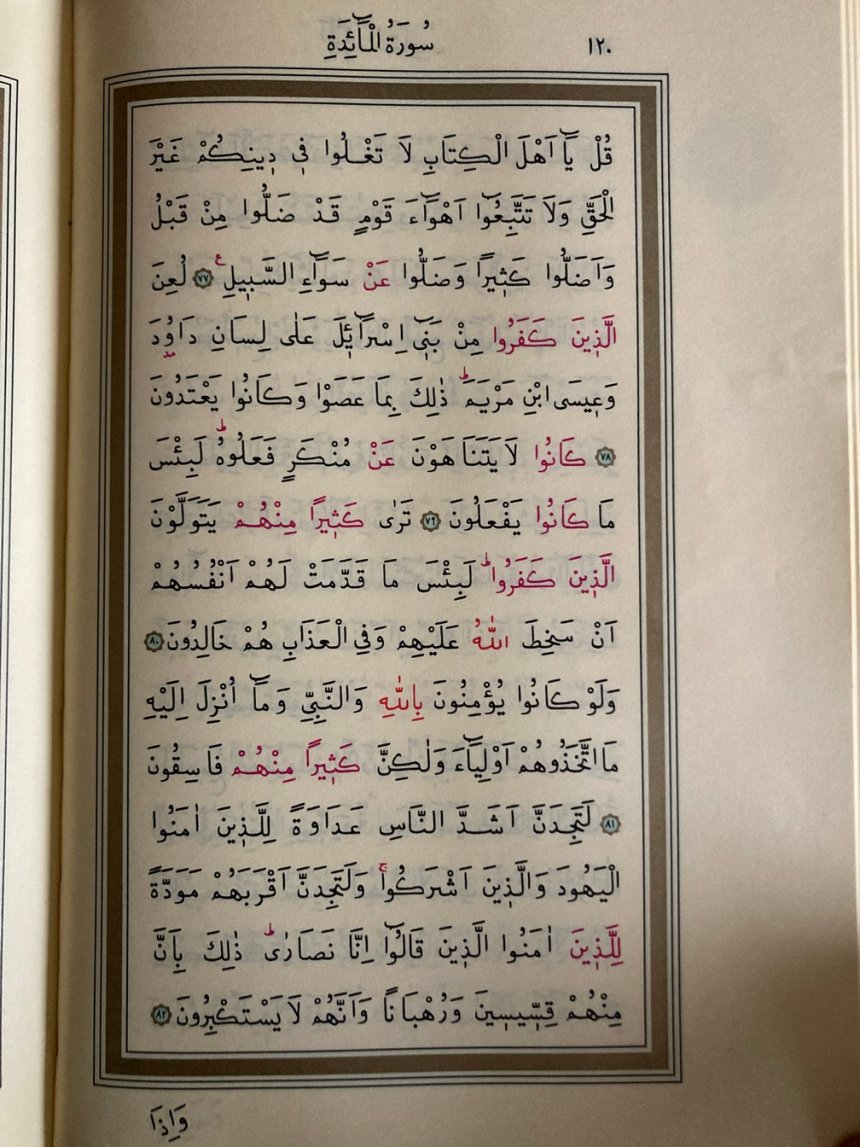 سُورَةُ الْمَٓائِدَةِ ١٢٠
قُلْ يَٓا اَهْلَ الْكِتَابِ لَا تَغْلُوا ف۪ي د۪ينِكُمْ غَيْرَ
الْحَقِّ وَلَا تَتَّبِعُٓوا اَهْوَٓاءَ قَوْمٍ قَدْ ضَلُّوا مِنْ قَبْلُ
وَاَضَلُّوا كَث۪يراً وَضَلُّوا عَنْ سَوَٓاءِ السَّب۪يلِ۟ ﴿٧٧﴾ لُعِنَ
الَّذ۪ينَ كَفَرُوا مِنْ بَن۪ٓي اِسْرَٓائ۪لَ عَلٰى لِسَانِ دَاوُ۫دَ
وَع۪يسَى ابْنِ مَرْيَمَۜ ذٰلِكَ بِمَا عَصَوْا وَكَانُوا يَعْتَدُونَ
﴿٧٨﴾ كَانُوا لَا يَتَنَاهَوْنَ عَنْ مُنْكَرٍ فَعَلُوهُۜ لَبِئْسَ
مَا كَانُوا يَفْعَلُونَ ﴿٧٩﴾ تَرٰى كَث۪يراً مِنْهُمْ يَتَوَلَّوْنَ
الَّذ۪ينَ كَفَرُواۜ لَبِئْسَ مَا قَدَّمَتْ لَهُمْ اَنْفُسُهُمْ
اَنْ سَخِطَ اللّٰهُ عَلَيْهِمْ وَفِي الْعَذَابِ هُمْ خَالِدُونَ ﴿٨٠﴾
وَلَوْ كَانُوا يُؤْمِنُونَ بِاللّٰهِ وَالنَّبِيِّ وَمَٓا اُنْزِلَ اِلَيْهِ
مَا اتَّخَذُوهُمْ اَوْلِيَٓاءَ وَلٰكِنَّ كَث۪يراً مِنْهُمْ فَاسِقُونَ
﴿٨١﴾ لَتَجِدَنَّ اَشَدَّ النَّاسِ عَدَاوَةً لِلَّذ۪ينَ اٰمَنُوا
الْيَهُودَ وَالَّذ۪ينَ اَشْرَكُواۚ وَلَتَجِدَنَّ اَقْرَبَهُمْ مَوَدَّةً
لِلَّذ۪ينَ اٰمَنُوا الَّذ۪ينَ قَالُٓوا اِنَّا نَصَارٰىۜ ذٰلِكَ بِاَنَّ
مِنْهُمْ قِسّ۪يس۪ينَ وَرُهْبَاناً وَاَنَّهُمْ لَا يَسْتَكْبِرُونَ ﴿٨٢﴾
وَاِذَا